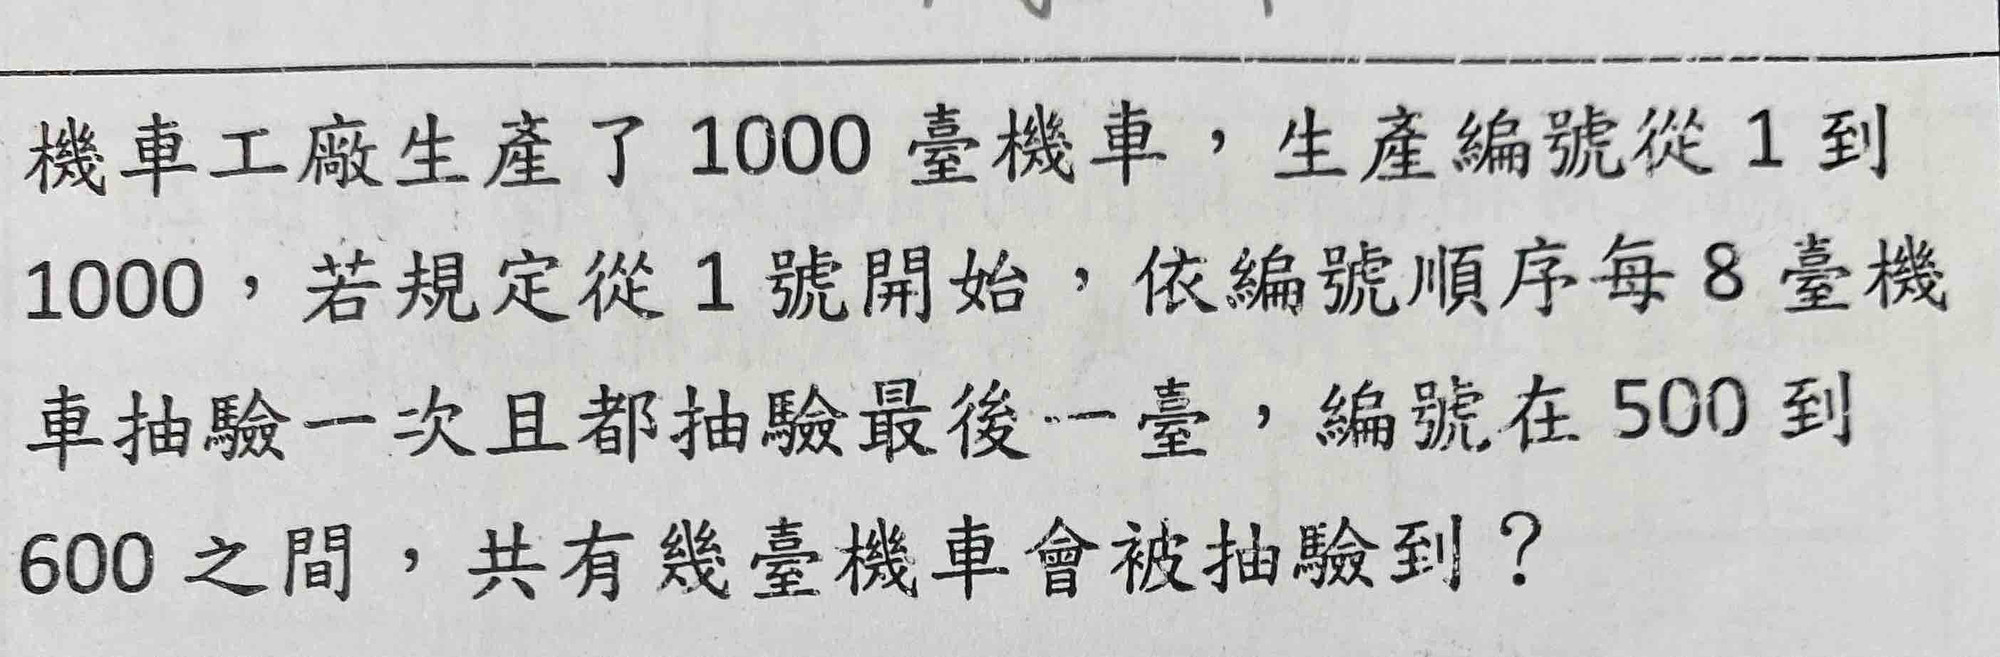 機車工廠生產了 1000 臺機車，生產編號從 1 到
1000，若規定從 1 號開始，依編號順序每 8 臺機
車抽驗一次且都抽驗最後一臺，編號在 500 到
600 之間，共有幾臺機車會被抽驗到？